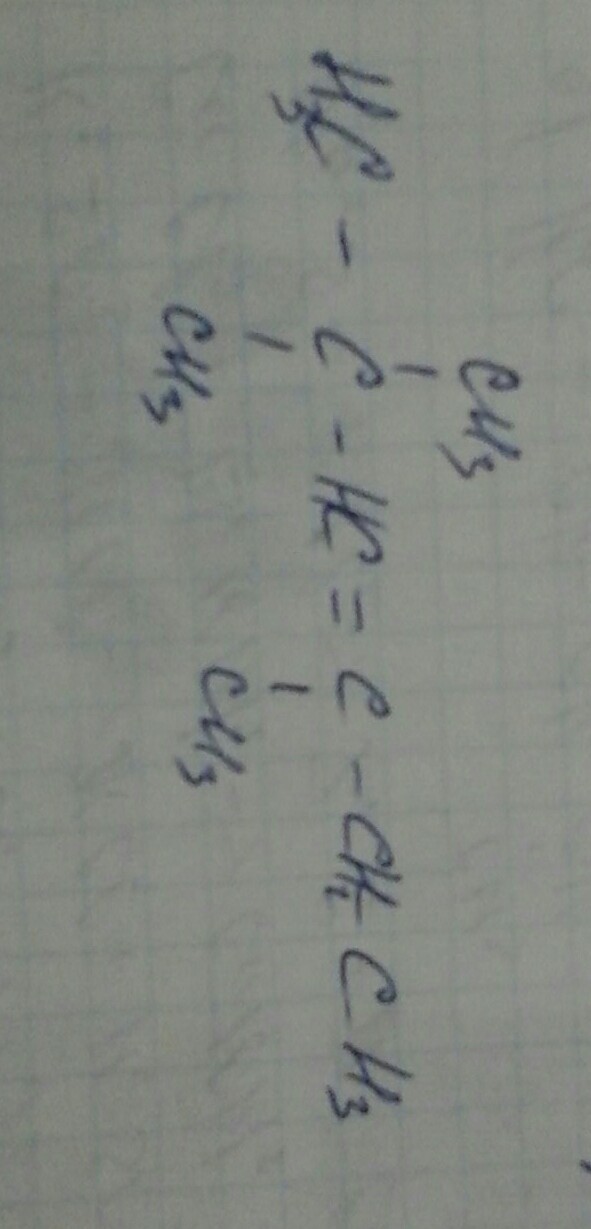 CH3
H3C - C - HC = C - CH2 - CH3
CH3 CH3